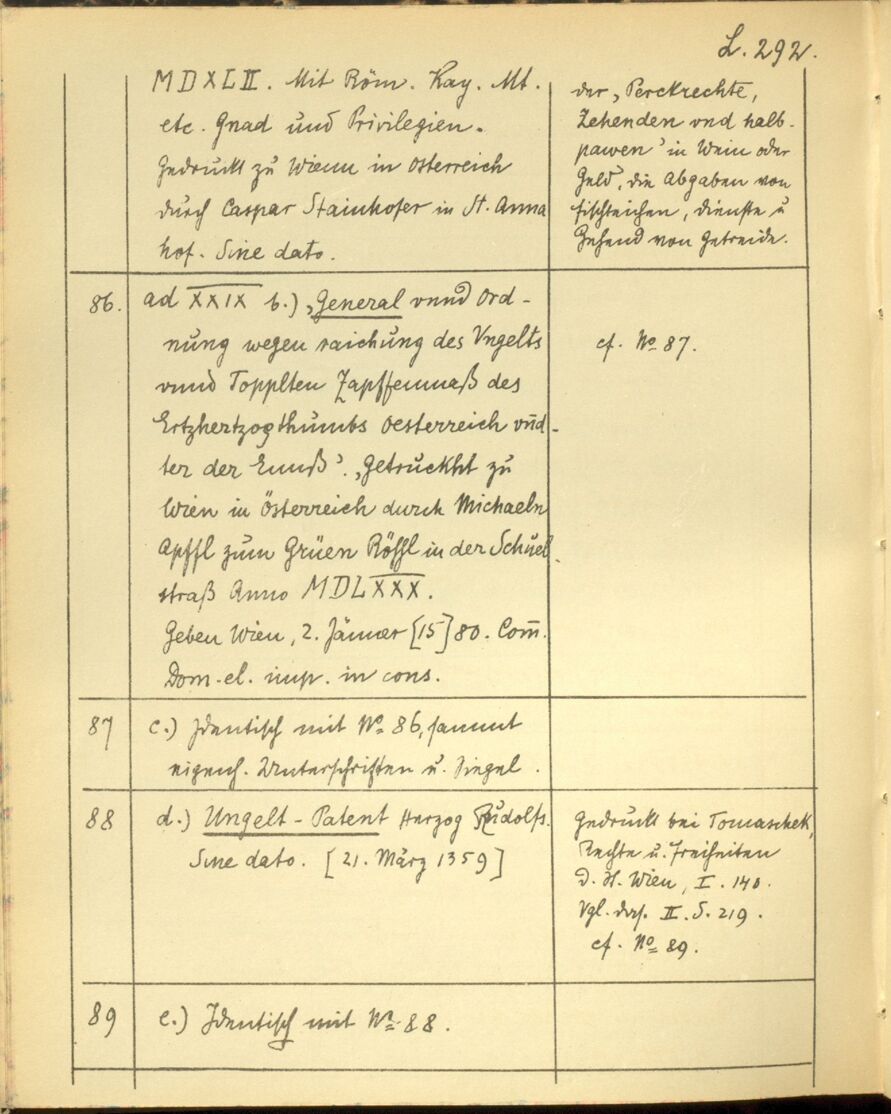 L. 292.
MDXLII. Mit Röm. Kay. Mt.
etc. Gnad und Privilegien.
Gedruckt zu Wienn in Osterreich
durch Caspar Stainhofer in St. Anna
hof. Sine dato.
der „Perckrechte,
Zehenden vnd halb-
pawen' in Wein oder
Geld', die Abgaben von
Fischteichen, Dienste u
Zehend von Getreide.
86. ad XXIX b.) „General vnnd Ord-
nung wegen raichung des Vngelts
vnnd Topplten Zapffenmaß des
Ertzhertzogthumbs Oesterreich vnd-
ter der Ennß'. „Getruckht zu
Wien in Österreich durch Michaeln
Apffl zum Grüen Rößl in der Schuel-
straß Anno MDLXXX.
Geben Wien, 2. Jänner [15]80. Com̄.
Dom. el. imp. in cons.
cf. No 87.
87 c.) Identisch mit No 86, sammt
eigenh. Unterschriften u. Siegel.
88 d.) Ungelt-Patent Herzog Rudolfs.
Sine dato. [21. März 1359]
Gedruckt bei Tomaschek,
Rechte u. Freiheiten
d. St. Wien, I. 140.
Vgl. das. II. S. 219.
cf. No 89.
89 e.) Identisch mit No 88.